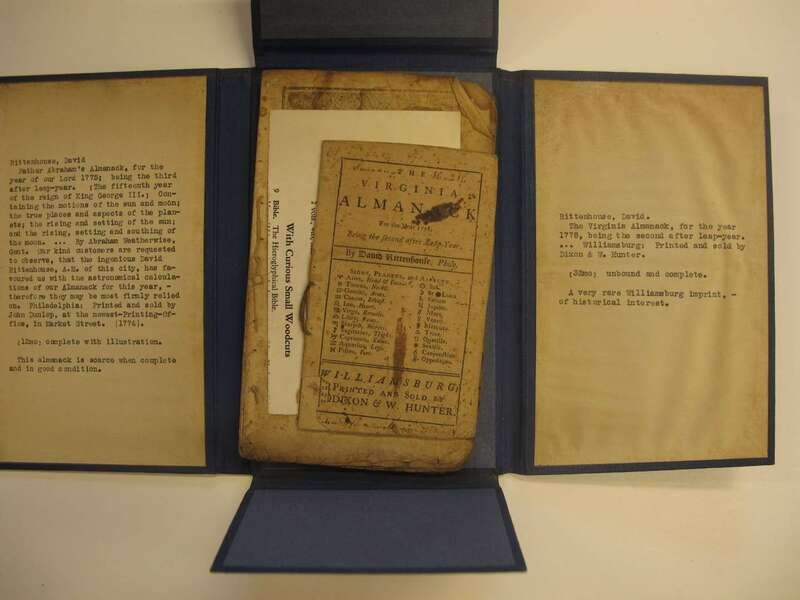 Rittenhouse, David
Father Abraham's Almanack, for the
year of our Lord 1775; being the third
after leap-year. (The fifteenth year
of the reign of King George III.; Con-
taining the motions of the sun and moon;
the true places and aspects of the plan-
ets; the rising and setting of the sun;
and the rising, setting and southing of
the moon. ... By Abraham Weatherwise,
Gent. Our kind customers are requested
to observe, that the ingenious David
Rittenhouse, A.M. of this city, has fa-
voured us with the astronomical calcula-
tions of our Almanack for this year, -
therefore they may be most firmly relied
on. Philadelphia: Printed and sold by
John Dunlop, at the newest-Printing-Of-
fice, in Market Street. (1774).
(12mo; complete with illustration.
This almanack is scarce when complete
and in good condition.
With Curious Small Woodcuts
9 Bible. The Hieroglyphical Bible.
THE
VIRGINIA
ALMANACK
For the Year 1778,
Being the second after Leap-Year.
By David Rittenhouse, Philo.
SIGNS, PLANETS, and ASPECTS.
WILLIAMSBURG:
PRINTED AND SOLD BY
DIXON & W. HUNTER.
Rittenhouse, David.
The Virginia Almanack, for the year
1778, being the second after leap-year.
... Williamsburg: Printed and sold by
Dixon & W. Hunter.
(32mo; unbound and complete.
A very rare Williamsburg imprint, -
of historical interest.